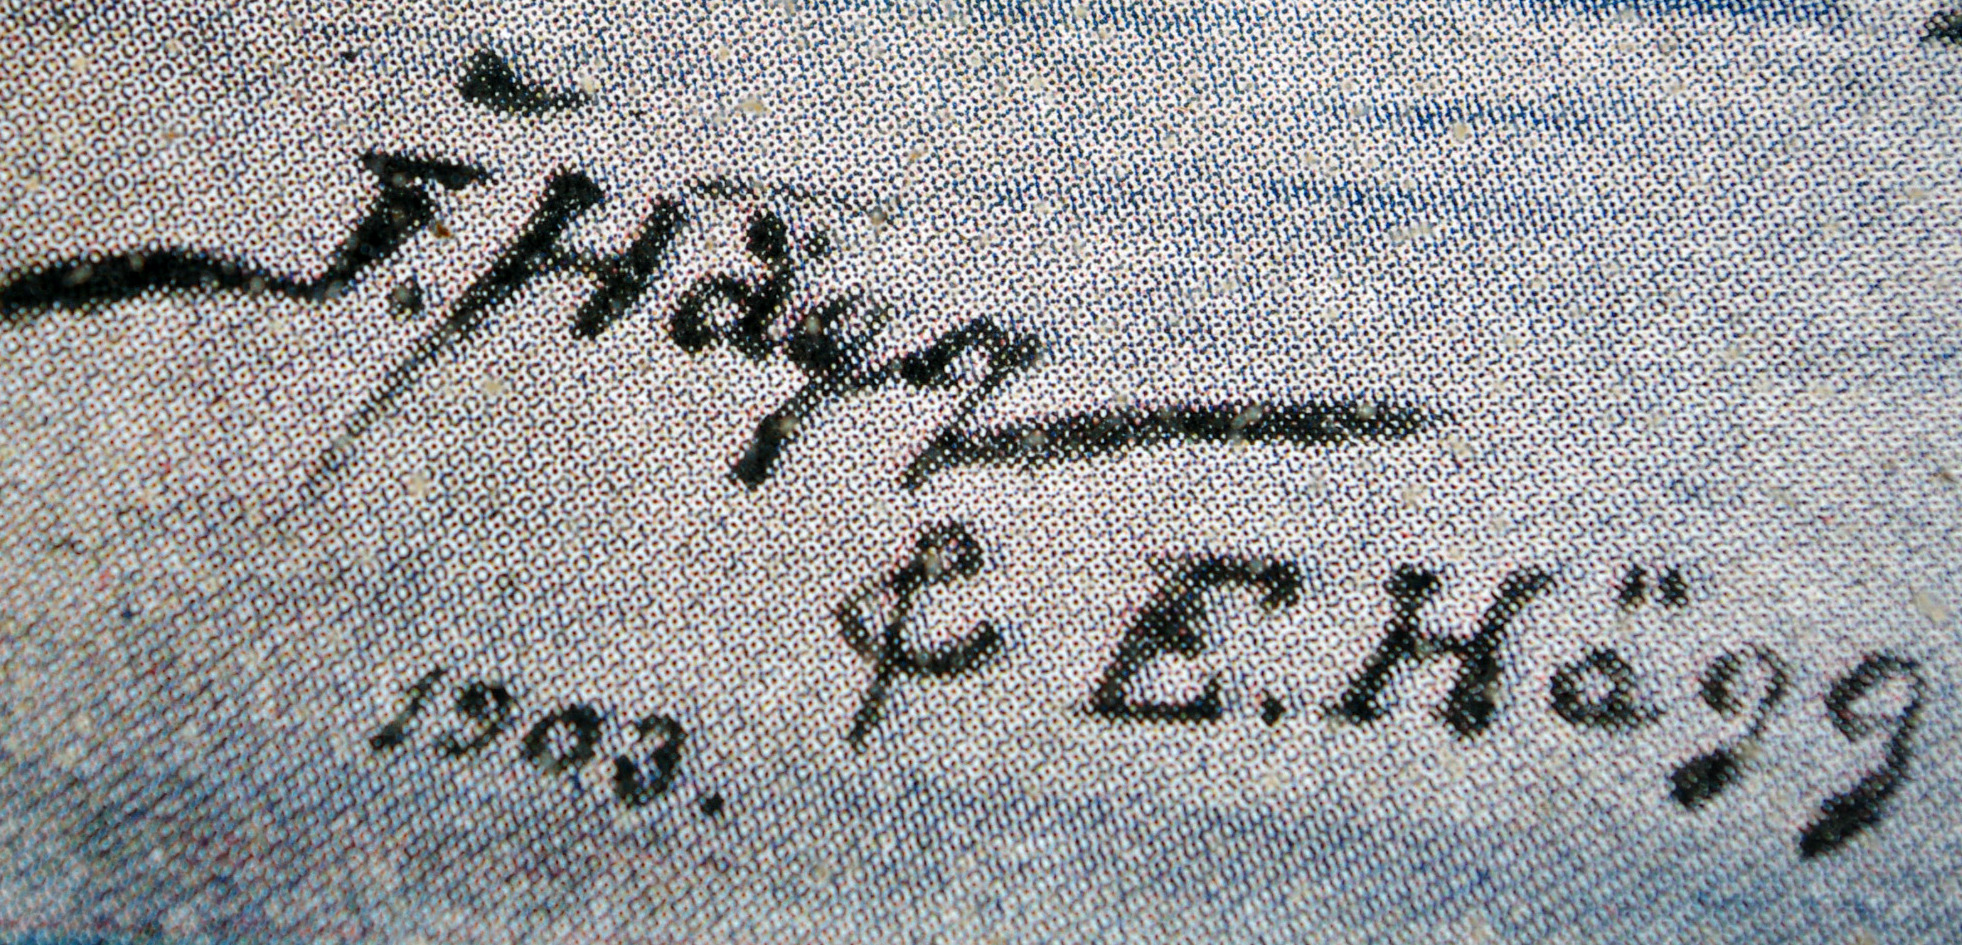 J. Hägg
& E. Hägg
1903.